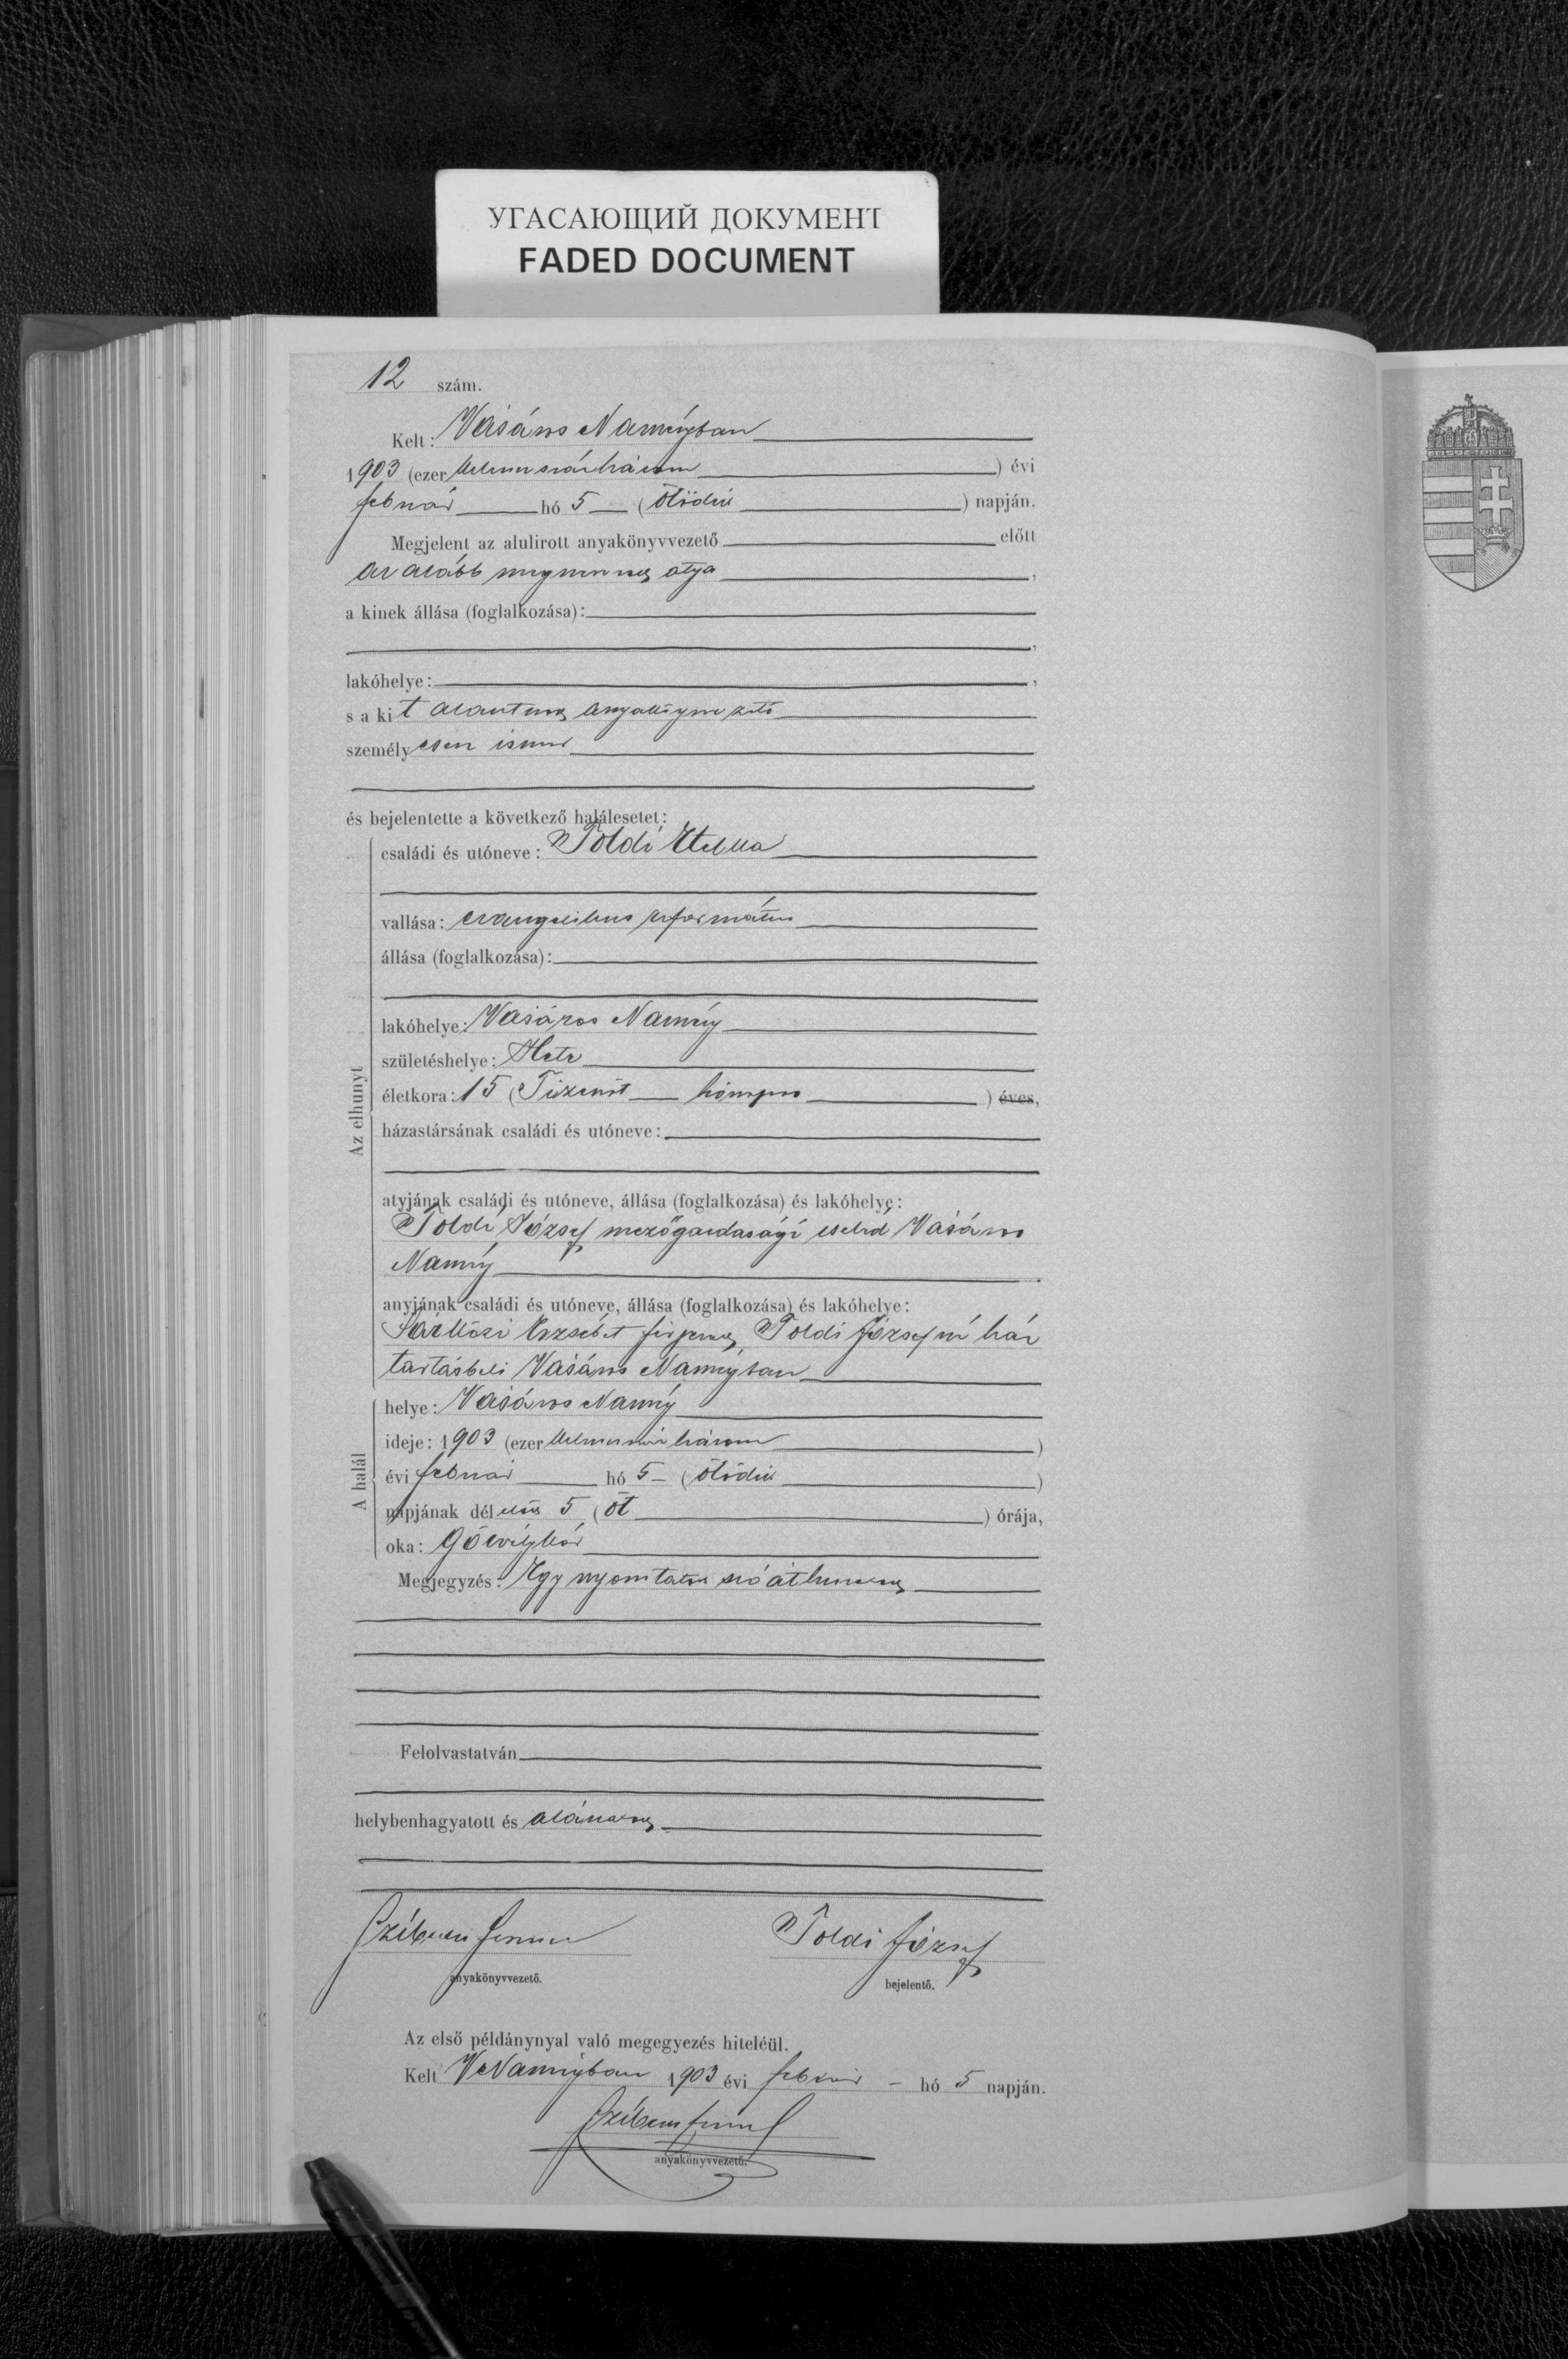 УГАСАЮЩИЙ ДОКУМЕНТ
FADED DOCUMENT
12 szám.
Kelt: Vásáros Naményban
1903 (ezer kilencszázhárom ) évi
február hó 5 (ötödik ) napján.
Megjelent az alulirott anyakönyvvezető előtt
az alább megnevezett atyja ,
a kinek állása (foglalkozása):
,
lakóhelye: ,
s a kit alantirott anyakönyvvezető
személyesen ismer
.
és bejelentette a következő halálesetet:
Az elhunyt
családi és utóneve: Toldi Etelka
vallása: evangelikus református
állása (foglalkozása):
lakóhelye: Vásáros Namény
születéshelye: Hete
életkora: 15 (Tizenöt hónapos ) éves,
házastársának családi és utóneve:
atyjának családi és utóneve, állása (foglalkozása) és lakóhelye:
Toldi József mezőgazdasági cseléd Vásáros
Namény
anyjának családi és utóneve, állása (foglalkozása) és lakóhelye:
Sarközi Erzsébet férjezett Toldi Józsefné ház
tartásbeli Vásáros Naményban
A halál
helye: Vásáros Namény
ideje: 1903 (ezer kilencszáz három )
évi február hó 5 (ötödik )
napjának délelőtt 5 (öt ) órája,
oka:
Megjegyzés: Egy nyomtatott szó áthúzatott
Felolvastatván
helybenhagyatott és aláíratott
anyakönyvvezető.
Toldi József
bejelentő.
Az első példánynyal való megegyezés hiteléül.
Kelt VNaményban 1903 évi február hó 5 napján.
anyakönyvvezető.